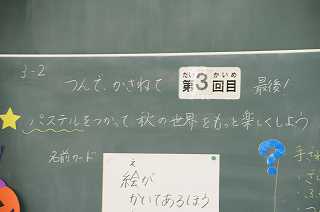 3-2
つんで、かさねて 第3回目 最後!
だい かいめ
パステルをつかって 秋の世界をもっと楽しくしよう
名前カード
え
絵が
かいてあるほう